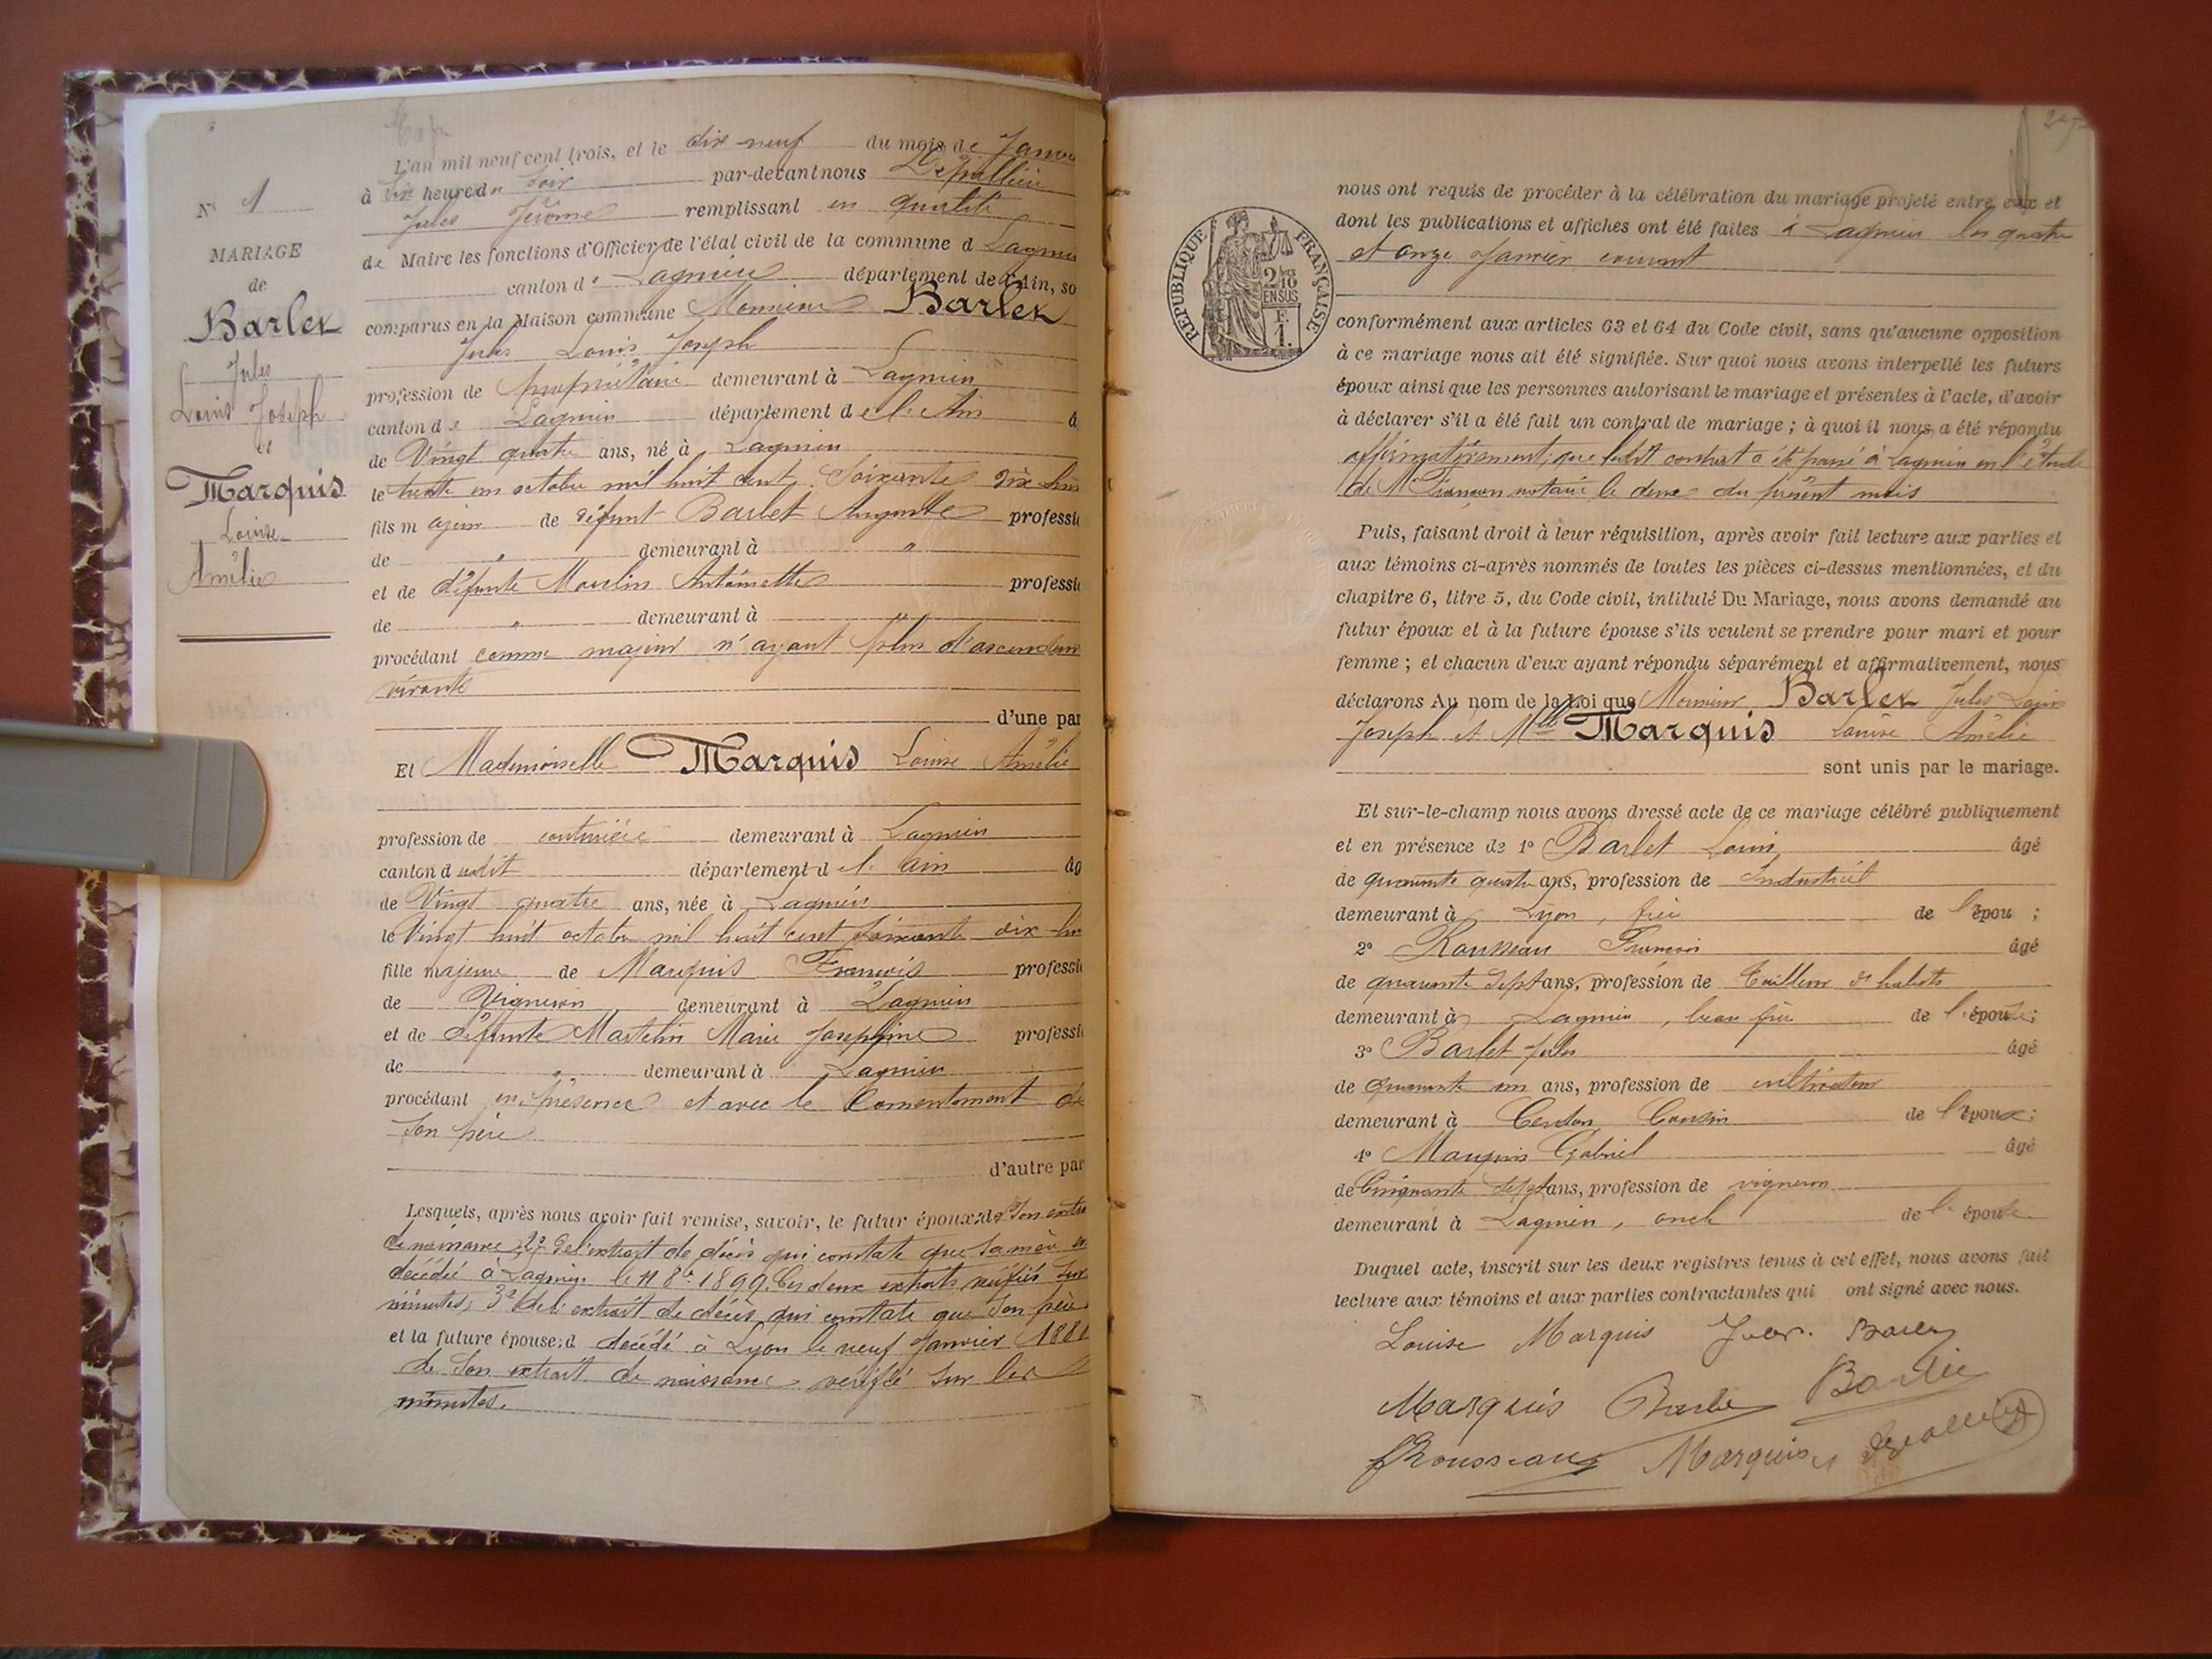 N° 1
MARIAGE
de
Barlet
Jules
Louis Joseph
et
Marquis
Louise
Amélie
L'an mil neuf cent trois, et le dix neuf du mois de Janvi
à six heures du Soir par-devant nous
Jules Jérôme remplissant en qualité
de Maire les fonctions d'Officier de l'état civil de la commune d Lagnieu
canton de Lagnieu département de l'Ain, so
comparus en la Maison commune Monsieur Barlet
Jules Louis Joseph
profession de propriétaire demeurant à Lagnieu
canton de Lagnieu département de l'Ain â
de Vingt quatre ans, né à Lagnieu
le trente un octobre mil huit cent Soixante dix huit
fils majeur de défunt Barlet Auguste professi
de " demeurant à "
et de défunte Moulin Antoinette professi
de " demeurant à
procédant comme majeur n'ayant plus d'ascendants
vivants
d'une par
Et Mademoiselle Marquis Louise Amélie
profession de couturière demeurant à Lagnieu
canton dudit département de l'Ain âg
de Vingt quatre ans, née à Lagnieu
le Vingt huit octobre mil huit cent soixante dix-hui
fille majeure de Marquis François professi
de Vigneron demeurant à Lagnieu
et de défunte Martelin Marie Joséphine professi
de " demeurant à Lagnieu
procédant en présence et avec le Consentement de
son père
d'autre par
Lesquels, après nous avoir fait remise, savoir, le futur époux: de son extrait
de naissance 2° de l'extrait de décès qui constate que sa mère est
décédée à Lagnieu le 11 8bre 1899. Ces deux extraits vérifiés sur
minutes; 3° de l'extrait de décès qui constate que son père
et la future épouse: d décédé à Lyon le neuf Janvier 1881
de son extrait de naissance vérifié sur les
minutes.
nous ont requis de procéder à la célébration du mariage projeté entre eux et
dont les publications et affiches ont été faites à Lagnieu les quatre
et onze Janvier courant
RÉPUBLIQUE FRANÇAISE
2/10
EN SUS
F.
1.
conformément aux articles 63 et 64 du Code civil, sans qu'aucune opposition
à ce mariage nous ait été signifiée. Sur quoi nous avons interpellé les futurs
époux ainsi que les personnes autorisant le mariage et présentes à l'acte, d'avoir
à déclarer s'il a été fait un contrat de mariage ; à quoi il nous a été répondu
affirmativement; que ledit contrat a été passé à Lagnieu en l'étude
de Me notaire le deux du présent mois
Puis, faisant droit à leur réquisition, après avoir fait lecture aux parties et
aux témoins ci-après nommés de toutes les pièces ci-dessus mentionnées, et du
chapitre 6, titre 5, du Code civil, intitulé Du Mariage, nous avons demandé au
futur époux et à la future épouse s'ils veulent se prendre pour mari et pour
femme ; et chacun d'eux ayant répondu séparément et affirmativement, nous
déclarons Au nom de la Loi que Monsieur Barlet Jules Louis
Joseph et Mlle Marquis Louise Amélie
sont unis par le mariage.
Et sur-le-champ nous avons dressé acte de ce mariage célébré publiquement
et en présence de 1° Barlet Louis âgé
de quarante quatre ans, profession de Industriel
demeurant à Lyon, frère de l'épou ;
2° Rousseau François âgé
de quarante Sept ans, profession de Tailleur d'habits
demeurant à Lagnieu, beau frère de l'épouse;
3° Barlet Jules âgé
de quarante un ans, profession de cultivateur
demeurant à Cousin de l'époux;
4° Marquis Gabriel âgé
de Cinquante Sept ans, profession de vigneron
demeurant à Lagnieu, oncle de l'épouse
Duquel acte, inscrit sur les deux registres tenus à cet effet, nous avons fait
lecture aux témoins et aux parties contractantes qui ont signé avec nous.
Louise Marquis
Marquis
f Rousseau Marquis